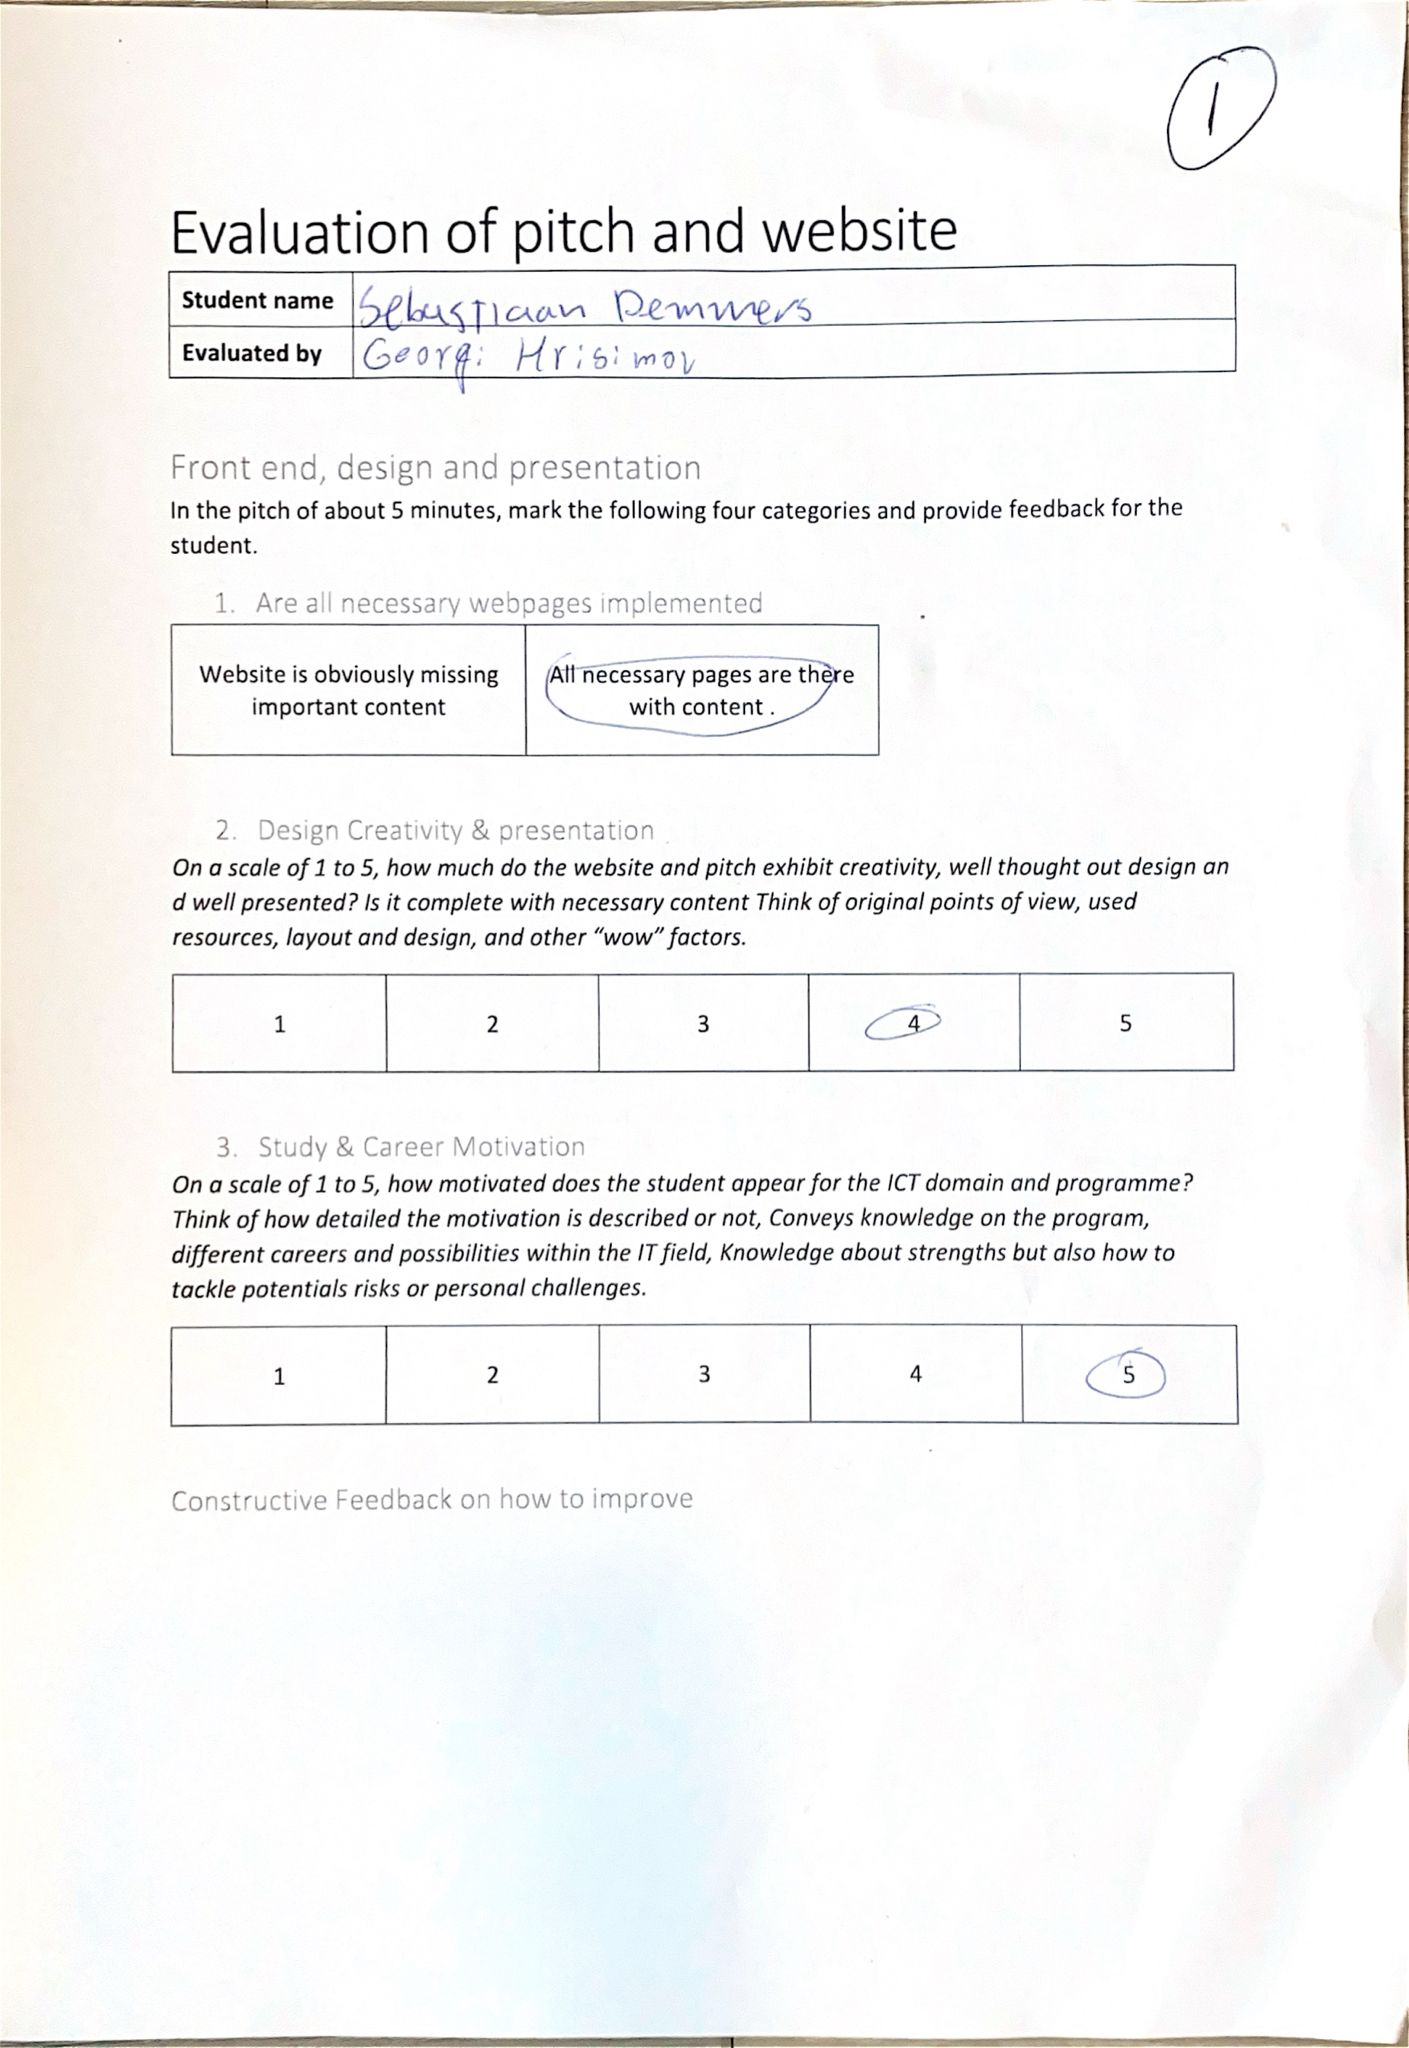 1
Evaluation of pitch and website
Student name Sebastiaan Demmers
Evaluated by Georgi Hrisimov
Front end, design and presentation
In the pitch of about 5 minutes, mark the following four categories and provide feedback for the
student.
1. Are all necessary webpages implemented
Website is obviously missing
important content
All necessary pages are there
with content .
2. Design Creativity & presentation
On a scale of 1 to 5, how much do the website and pitch exhibit creativity, well thought out design an
d well presented? Is it complete with necessary content Think of original points of view, used
resources, layout and design, and other “wow” factors.
1 2 3 4 5
3. Study & Career Motivation
On a scale of 1 to 5, how motivated does the student appear for the ICT domain and programme?
Think of how detailed the motivation is described or not, Conveys knowledge on the program,
different careers and possibilities within the IT field, Knowledge about strengths but also how to
tackle potentials risks or personal challenges.
1 2 3 4 5
Constructive Feedback on how to improve